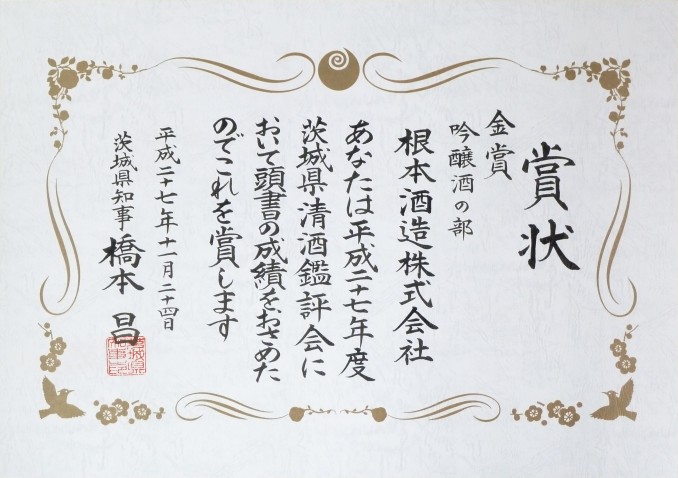 賞状
金賞
吟醸酒の部
根本酒造株式会社
あなたは平成二十七年度
茨城県清酒鑑評会に
おいて頭書の成績をおさめた
のでこれを賞します
平成二十七年十一月二十四日
茨城県知事 橋本 昌
茨城県
知事印